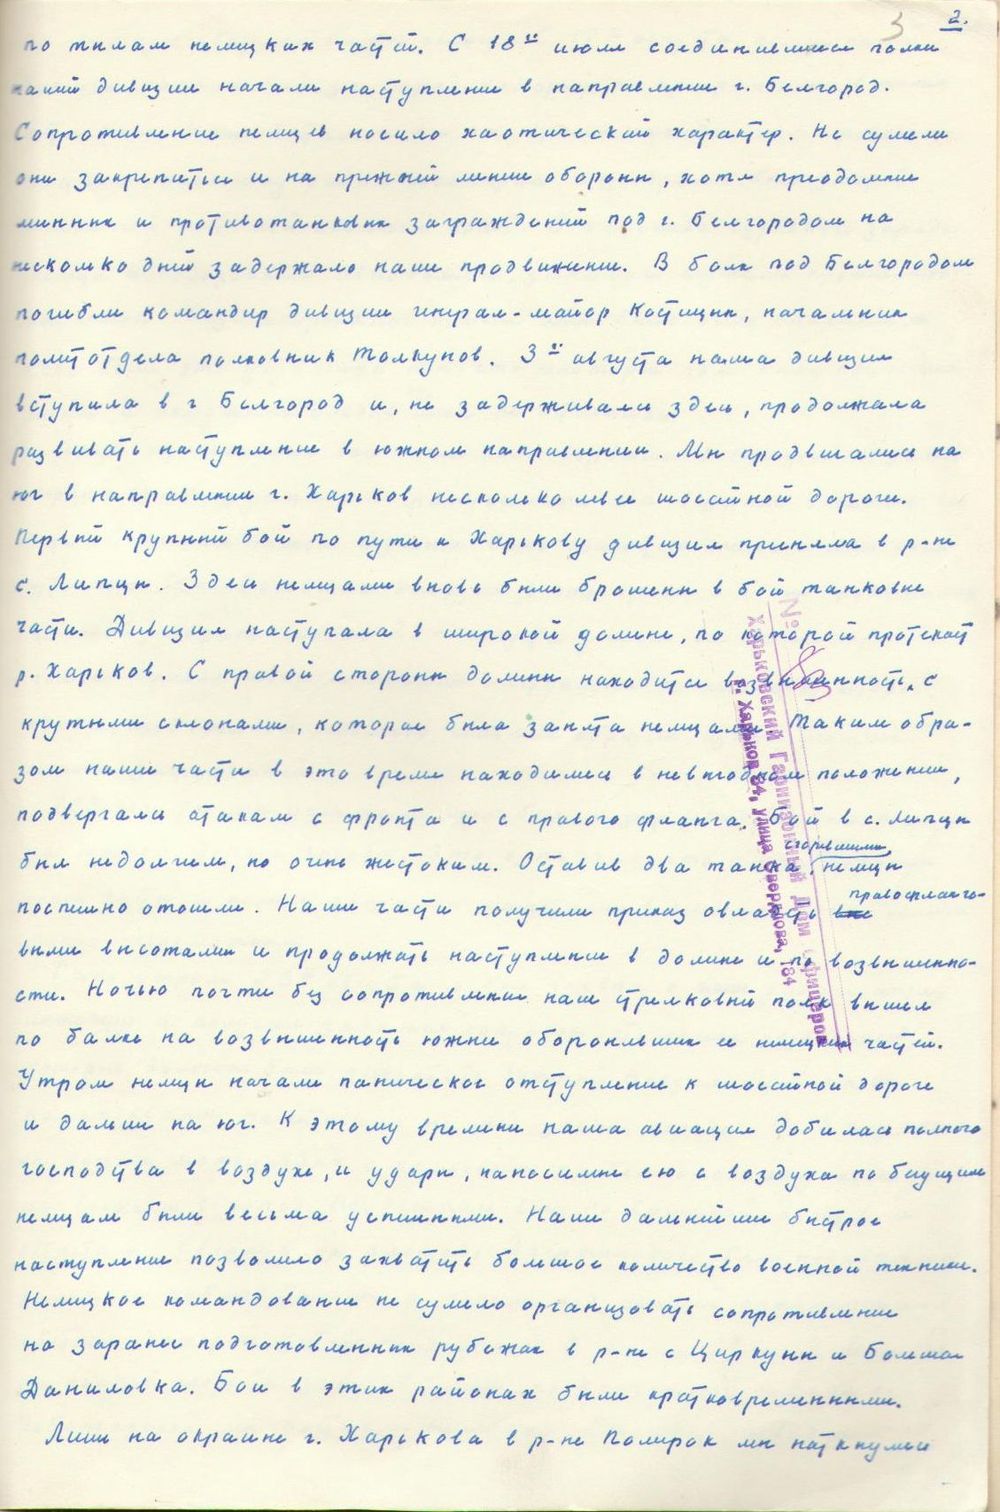 3 2.
по тылам немецких частей. С 18ᵘ июля соединившиеся полки
нашей дивизии начали наступление в направлении г. Белгород.
Сопротивление немцев носило хаотический характер. Не сумели
они закрепиться и на прежней линии обороны, хотя преодоление
минных и противотанковых заграждений под г. Белгородом на
несколько дней задержало наше продвижение. В боях под Белгородом
погибли командир дивизии генерал-майор Костицын, начальник
политотдела полковник Толкунов. 3ᵘ августа наша дивизия
вступила в г Белгород и, не задерживаясь здесь, продолжала
развивать наступление в южном направлении. Мы продвигались на
юг в направлении г. Харьков несколько левее шоссейной дороги.
Первый крупный бой по пути к Харькову дивизия приняла в р-не
с. Липцы. Здесь немцами вновь были брошены в бой танковые
части. Дивизия наступала в широкой долине, по которой протекает
р. Харьков. С правой стороны долины находится возвышенность с
крутыми склонами, которая была занята немцами. Таким обра-
зом наши части в это время находились в невыгодном положении,
подвергаясь атакам с фронта и с правого фланга. Бой в с. Липцы
был недолгим, но очень жестоким. Оставив два танка сгоревшими, немцы
поспешно отошли. Наши части получили приказ овладеть правофланго-
выми высотами и продолжать наступление в долине и по возвышенно-
сти. Ночью почти без сопротивления наш стрелковый полк вышел
по балке на возвышенность южнее оборонявших ее немецких частей.
Утром немцы начали паническое отступление к шоссейной дороге
и дальше на юг. К этому времени наша авиация добилась полного
господства в воздухе, и удары, наносимые ею с воздуха по бегущим
немцам были весьма успешными. Наше дальнейшее быстрое
наступление позволило захватить большое количество военной техники.
Немецкое командование не сумело организовать сопротивление
на заранее подготовленных рубежах в р-не с Циркуны и Большая
Даниловка. Бои в этих районах были кратковременными.
Лишь на окраине г. Харькова в р-не Померок мы наткнулись
№
Харьковский Гарнизонный Дом офицеров
г. Харьков 24, улица 184